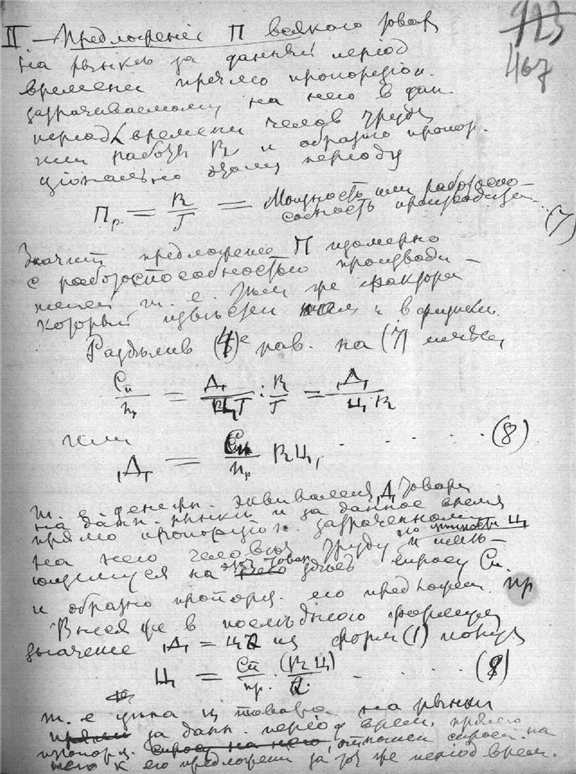 123
467
II – Предложеніе П всякого товара
на рынкѣ за данный період
времени прямо пропорціон.
затрачиваемому на него в дан.
період времени челов. труду
или работѣ R и обратно пропор-
ціонально этому періоду
Пр = R/T = Мощность или работоспо-
собность производит. (7)
Значит предложеніе П измѣрно
с работоспособностью производи-
телей т. е. тѣм же фактором
который извѣстен нам и в физикѣ.
Раздѣлив (4)е рав. на (7) имѣем
Сп/пр = Д/ЦТ : R/T = Д/ЦR
или
Д = Сп/пр RЦ, . . . . . (8)
т. е. денежн. эквивалент Д товара
на данн. рынкѣ и за данное время
прямо пропорціон. затраченному
на него человѣч. труду по цѣнности Ц и имѣю-
щемуся на этот товар здѣсь спросу Сп.
и обратно пропорц. его предложен. пр
Внеся же в послѣднюю формулу
значеніе Д = цZ из форм (1) получ
Ц = Сп/пр. (RЦ)/Z . . . . . (8)
т. е цѣна ц товара на рынкѣ
за данн. період врем. прямо
пропорц. отношен. спроса на
него к его предложен. за тот же період врем.